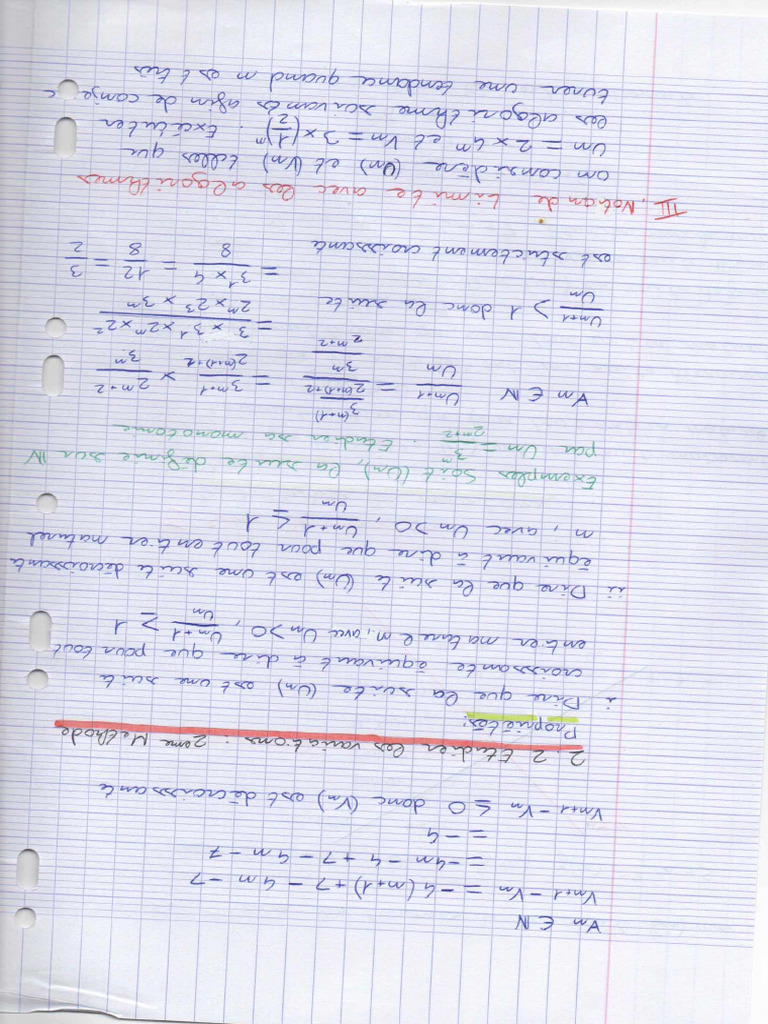 ∀n ∈ ℕ
Vn+1 - Vn = -4(n+1) + 7 - 4n - 7
= -4n - 4 + 7 - 4n - 7
= -4
Vn+1 - Vn ≤ 0 donc (Vn) est décroissante
2.2 Etudier les variations : 2ème Méthode
Propriétés:
i Dire que la suite (Un) est une suite
croissante équivaut à dire que pour tout
entier naturel n, avec Un>0, Un+1/Un ≥ 1
ii Dire que la suite (Un) est une suite décroissante
équivaut à dire que pour tout entier naturel
n, avec Un>0, Un+1/Un ≤ 1
Exemples Soit (Un), la suite définie sur ℕ
par Un = 3^n/2^(n+2). Etudier sa monotonie
∀n ∈ ℕ Un+1/Un = (3^(n+1)/2^((n+1)+2))/(3^n/2^(n+2)) = 3^(n+1)/2^((n+1)+2) × 2^(n+2)/3^n
= (3^n × 3^1 × 2^n × 2^2)/(2^n × 2^3 × 3^n)
Un+1/Un > 1 donc la suite = (3^1 × 4)/8 = 12/8 = 3/2
est strictement croissante
III. Notion de Limite avec les algorithmes
on considère (Un) et (Vn) telles que
Un = 2×4^n et Vn = 3×(1/2)^n. Exécuter
les algorithme suivants afin de conje
turer une tendance quand n est très